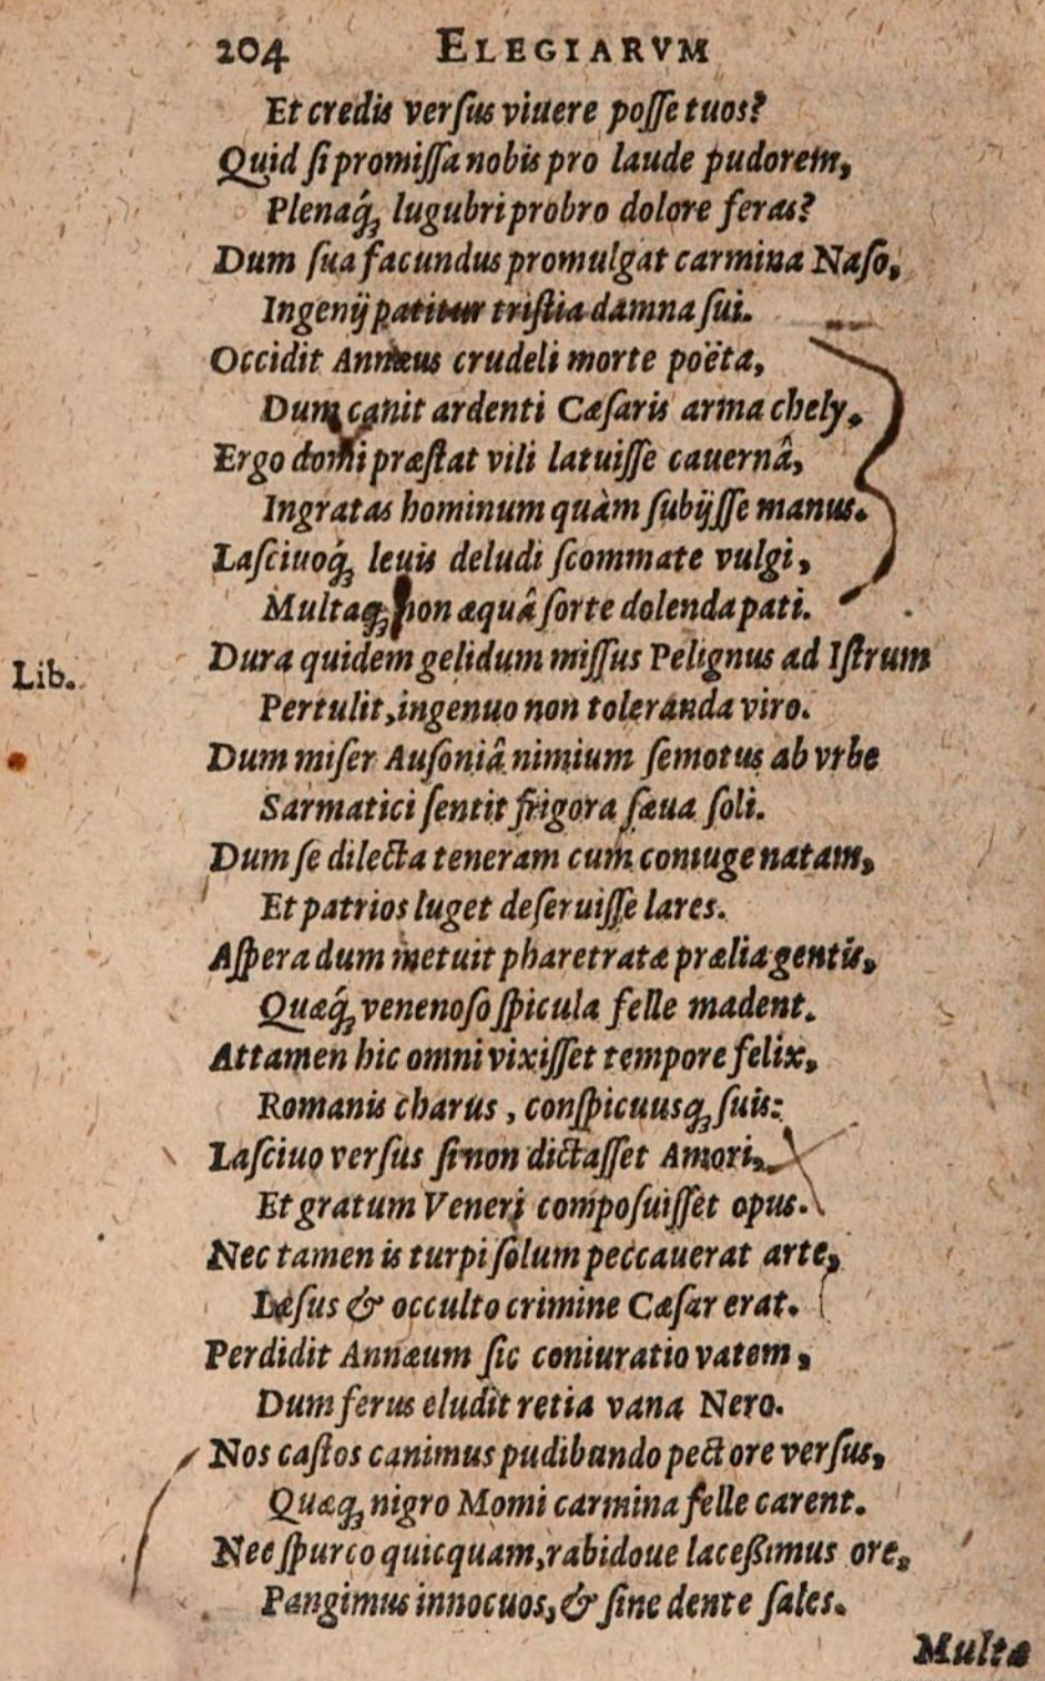 204 ELEGIARVM
Et credis verſus viuere poſſe tuos?
Quid ſi promiſſa nobis pro laude pudorem,
Plenaq́ꝫ lugubri probro dolore feras?
Dum ſua facundus promulgat carmina Naſo,
Ingenij patitur triſtia damna ſui.
Occidit Annæus crudeli morte poëta,
Dum canit ardenti Cæſaris arma chely.
Ergo domi præſtat vili latuiſſe cauernâ,
Ingratas hominum quàm ſubijſſe manus.
Laſciuoq́ꝫ leuis deludi ſcommate vulgi,
Multaqꝫ non æquâ ſorte dolenda pati.
Dura quidem gelidum miſſus Pelignus ad Iſtrum
Lib.
Pertulit, ingenuo non toleranda viro.
Dum miſer Auſoniâ nimium ſemotus ab vrbe
Sarmatici ſentit frigora ſæua ſoli.
Dum ſe dilecta teneram cum coniuge natam,
Et patrios luget deſeruiſſe lares.
Aſpera dum metuit pharetratæ prælia gentis,
Quæq́ꝫ venenoſo ſpicula felle madent.
Attamen hic omni vixiſſet tempore felix,
Romanis charus, conſpicuusqꝫ ſuis:
Laſciuo verſus ſi non dictaſſet Amori,
Et gratum Veneri compoſuiſſet opus.
Nec tamen is turpi ſolum peccauerat arte,
Læſus & occulto crimine Cæſar erat.
Perdidit Annæum ſic coniuratio vatem,
Dum ferus eludit retia vana Nero.
Nos caſtos canimus pudibundo pectore verſus,
Quæqꝫ nigro Momi carmina felle carent.
Nec ſpurco quicquam, rabidoue laceßimus ore,
Pangimus innocuos, & ſine dente ſales.
Multæ